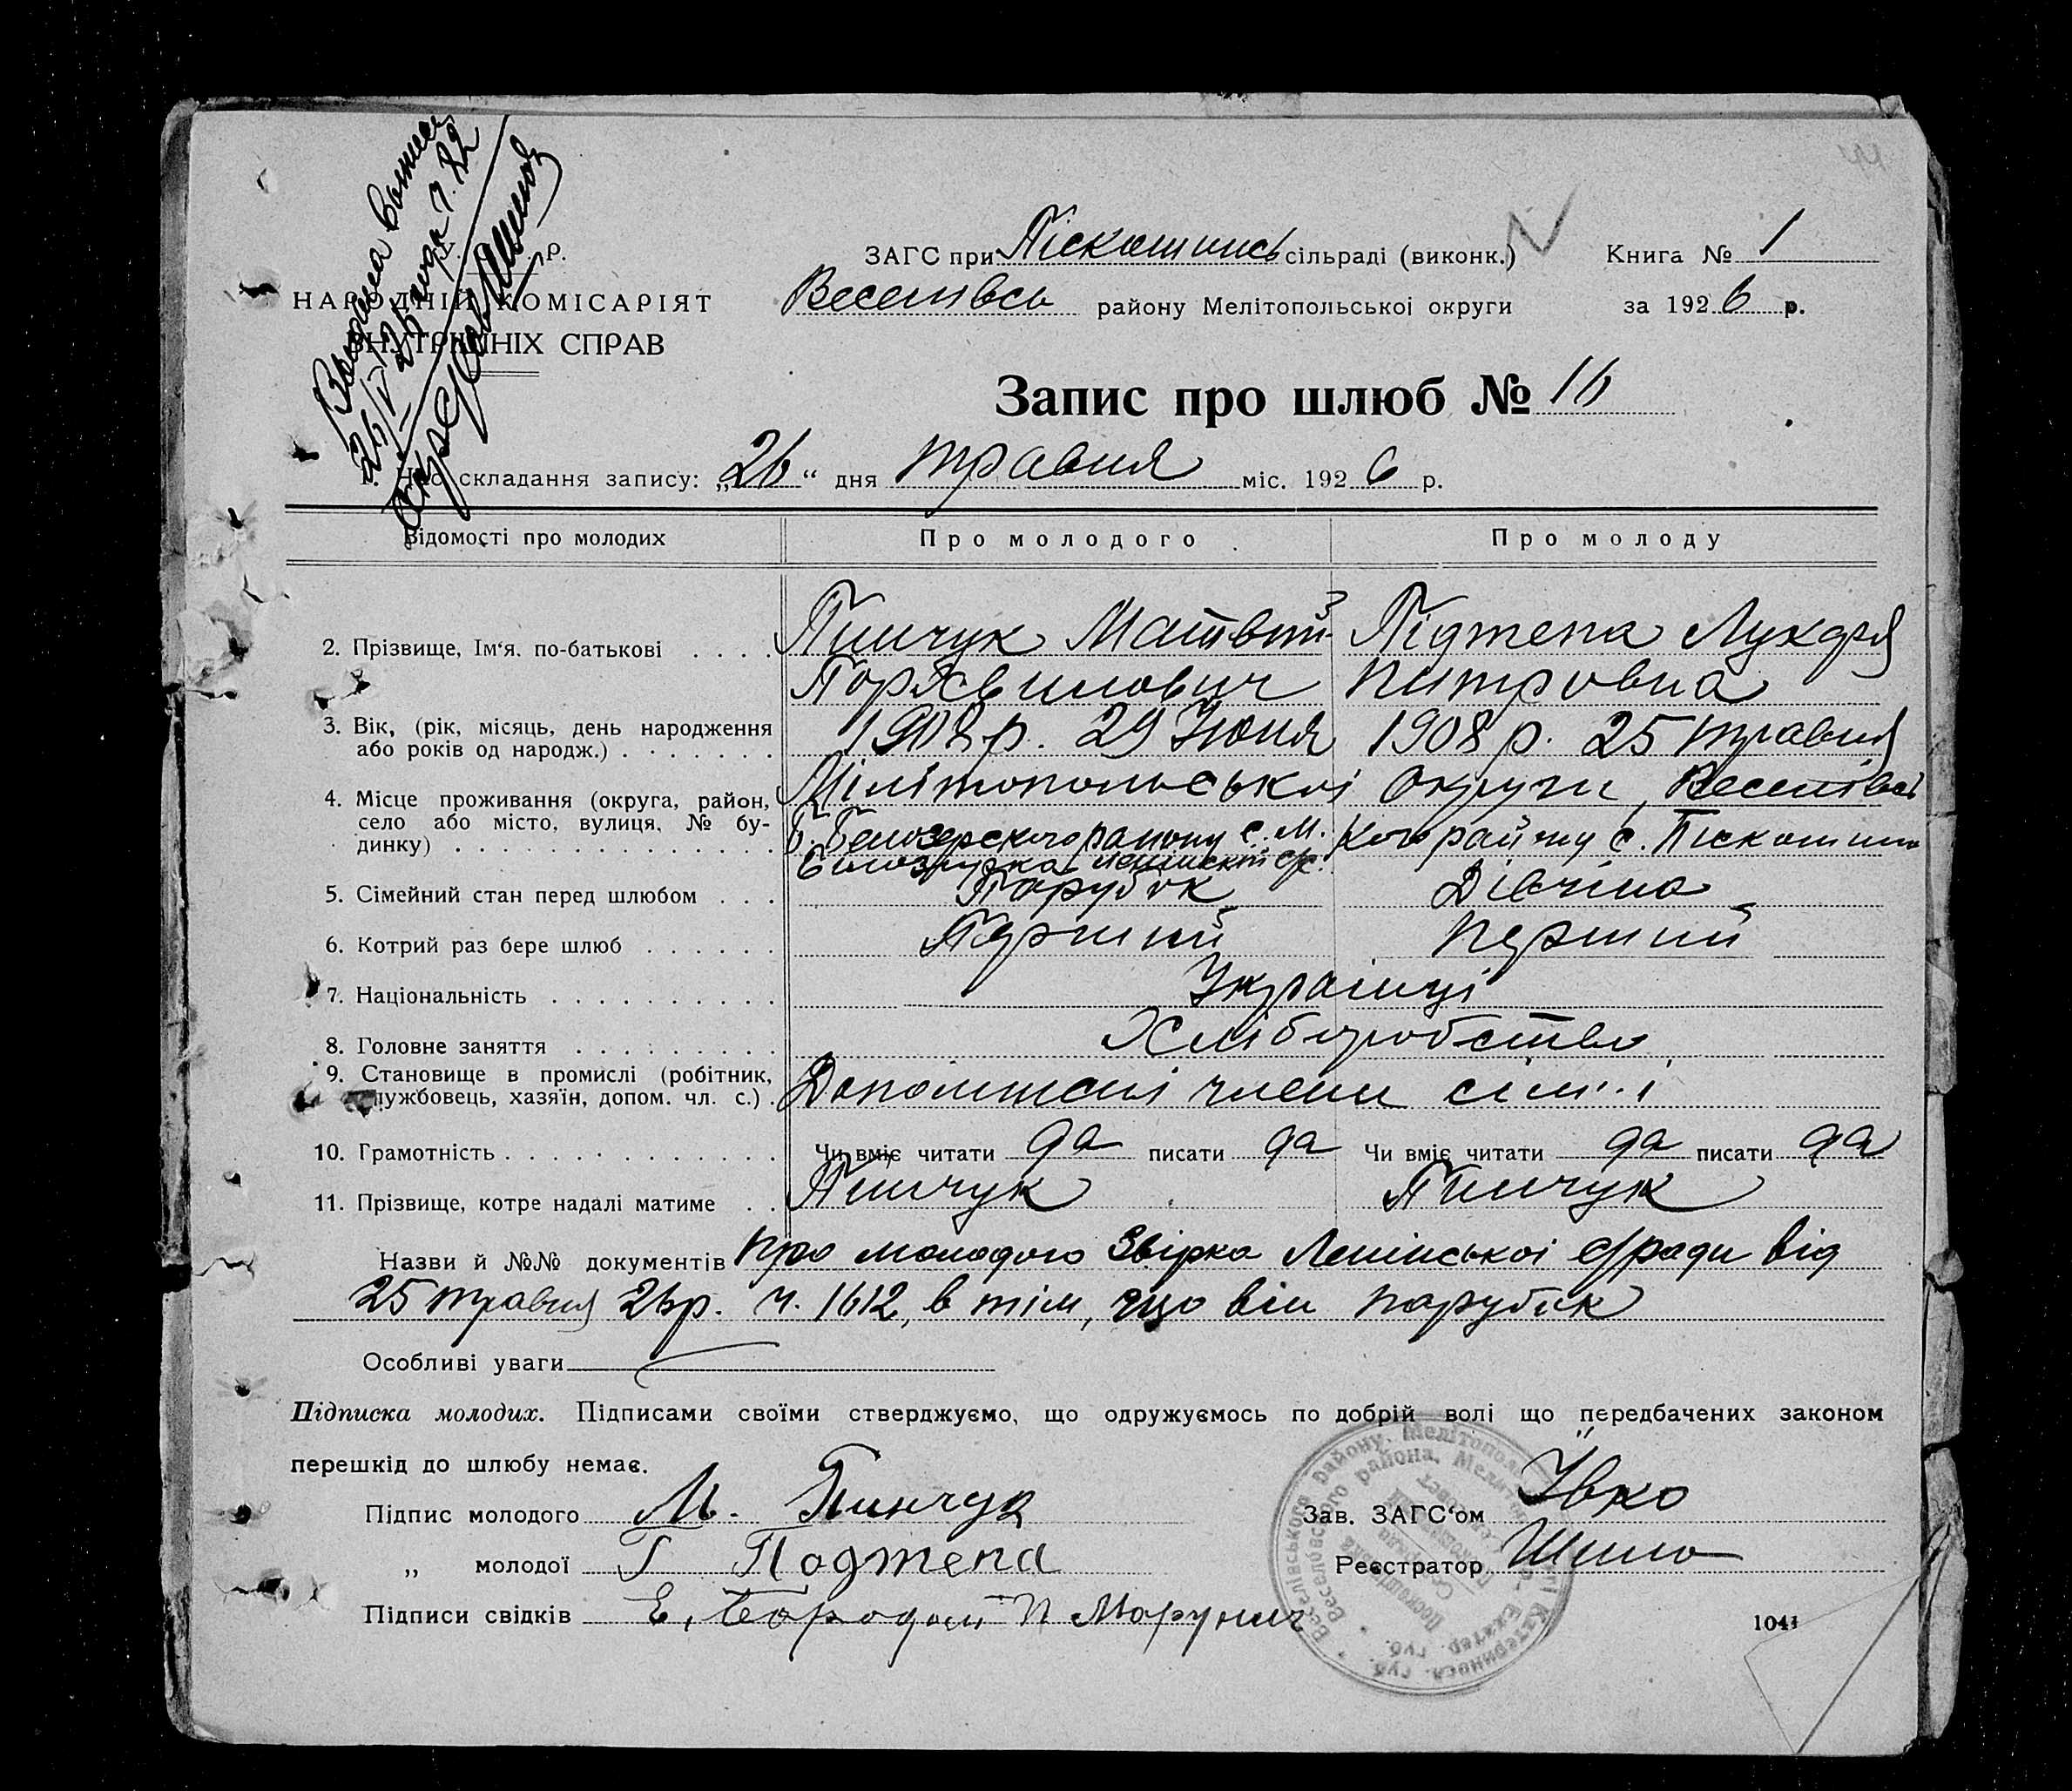 Видана Выписа
26/V 26 года ч. 82
У. Р.
НАРОДНІЙ КОМІСАРІЯТ
ВНУТРІШНІХ СПРАВ
ЗАГС при Піскошинсь сільраді (виконк.)
Книга № 1
Веселівсь району Мелітопольськоі округи
за 1926 р.
Запис про шлюб № 16
1. Час складання запису: „26“ дня травня міс. 1926 р.
Відомості про молодих
Про молодого
Про молоду
2. Прізвище, Ім'я. по-батькові
Пинчук Матвій
Підтепа Лукдря
Порхвилович
Питровна
3. Вік, (рік, місяць, день народження або років од народж.)
1908 р. 29 Июня
1908 р. 25 травня
4. Місце проживання (округа, район, село або місто, вулиця, № будинку)
Мілітопольськоі округи, Веселівсь
Б. Белозерского району с. М.
кого району с. Піскошино
Билозирка Ленінскій с/с.
5. Сімейний стан перед шлюбом
Парубок
Дівчіна
6. Котрий раз бере шлюб
Перший
Перший
7. Національність
Українці
8. Головне заняття
Хліборобство
9. Становище в промислі (робітник, службовець, хазяїн, допом. чл. с.)
Допоміжні члени сім'і
10. Грамотність
Чи вміє читати да писати да
Чи вміє читати да писати да
11. Прізвище, котре надалі матиме
Пинчук
Пинчук
Назви й №№ документів про молодого Звірка Ленінськоі с/ради від
25 травня 26 р. ч. 1612, в тім, що він парубик
Особливі уваги
Підписка молодих. Підписами своїми стверджуємо, що одружуємось по добрій волі що передбачених законом
перешкід до шлюбу немає.
Підпис молодого М. Пинчук
Зав. ЗАГС'ом Ивко
„ молодої Г Подтепа
Реєстратор Шило
Підписи свідків Е. Бородай П Марунич
1041
Веселівського району. Мелітопол Катериносл. губ.
Веселовского района. Мелитоп Екатер. губ.